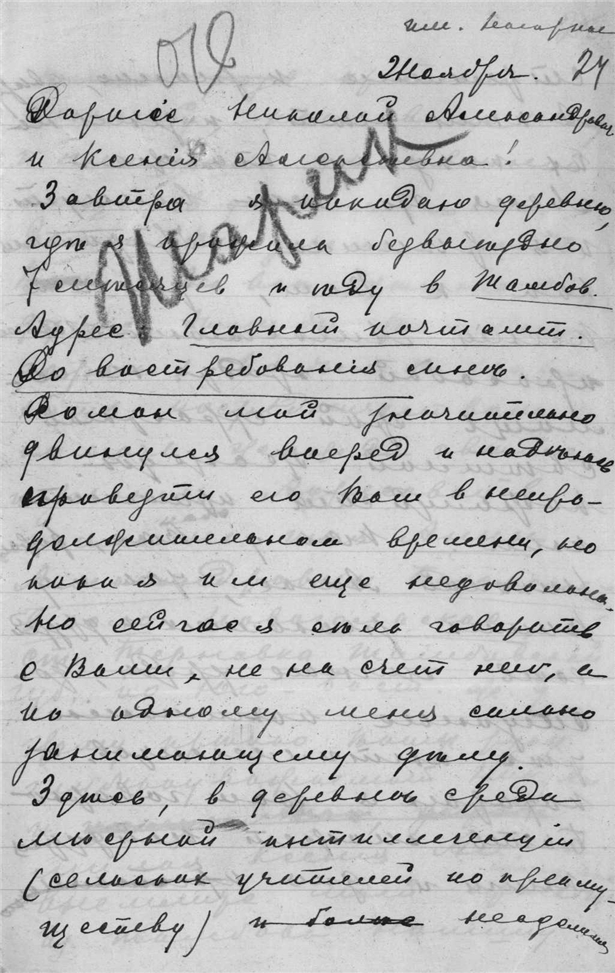 2 Ноября. 24
Дорогие Николай Александрович
и Ксения Алексеевна!
Завтра я покидаю деревню,
где я прожила безвыездно
7 месяцев и еду в Тамбов.
Адрес: Главный почтамт.
До востребования
Роман мой значительно
двинулся вперед и надеюсь
его Вам в непро-
должительном времени, но
пока я им еще недовольна.
Но сейчас я
с Вами, не на счет него, а
по одному меня сильно
занимающему делу.
Здесь, в деревне среди
местной интеллигенции
(сельских учителей по преиму-
ществу) и более